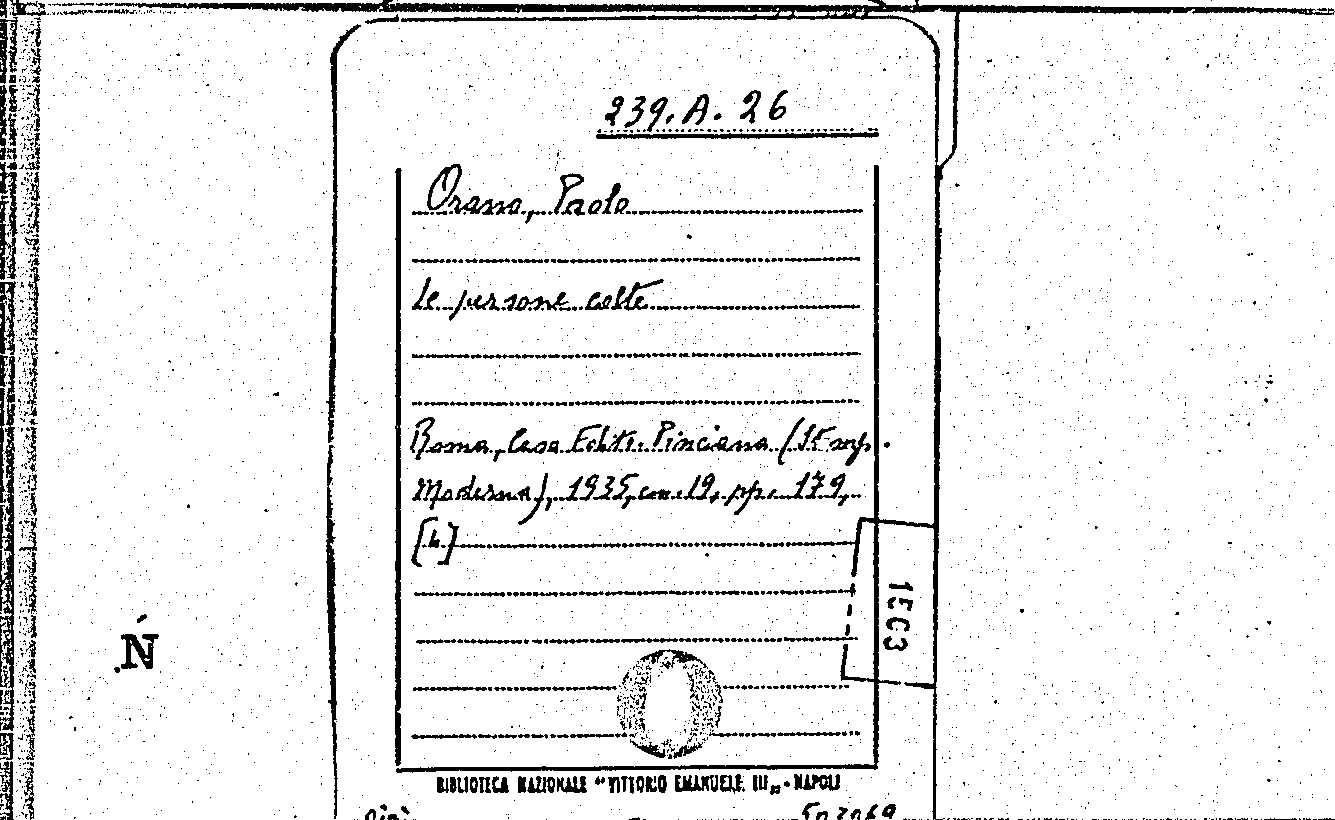 239. A. 26
Orano, Paolo
Le persone colte
Roma, Casa Editr. Pinciana (
Moderna), 1935, cm. 19, pp. 179,
[4.]
1503
N
BIBLIOTECA NAZIONALE "VITTORIO EMANUELE III„ - NAPOLI